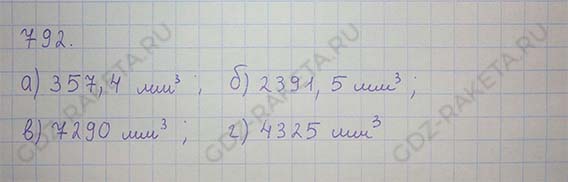 792.
а) 357,4 мм³ ; б) 2391,5 мм³ ;
в) 7290 мм³ ; г) 4325 мм³
GDZ-RAKETA.RU
GDZ-RAKETA.RU
GDZ-RAKETA.RU
GDZ-RAKETA.RU